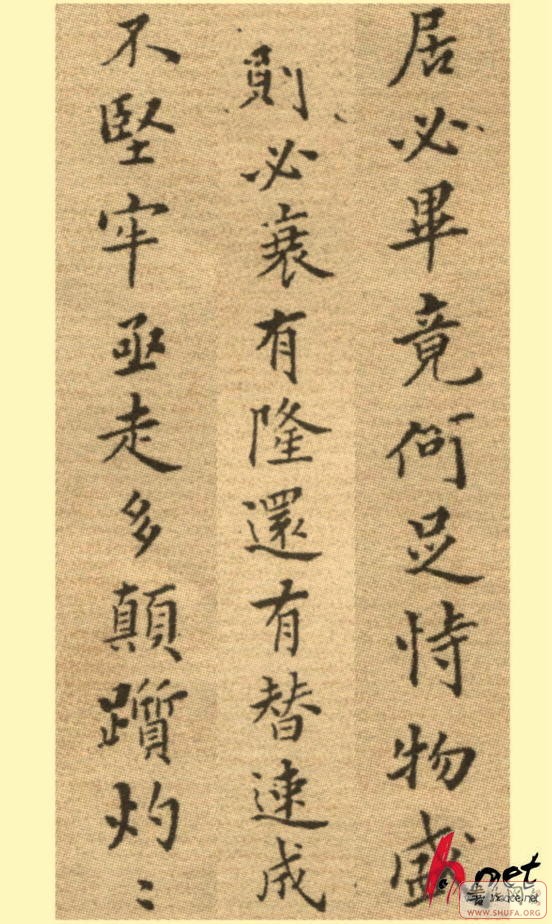 居必畢竟何足恃物盛
則必衰有隆還有替速成
不堅牢亟走多顛躓灼灼
WWW.SHUFA.ORG